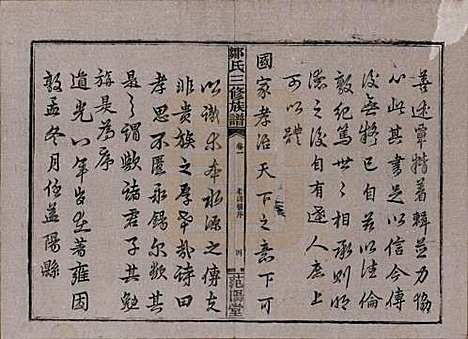 善述覃揩著輯並力協
心此其書足以信今傳
後無疑已自古以法倫
敦紀篤世世相承則明
德之後自有達人庶上
可以體
國家孝治天下之意下可
鄒氏三修族譜
卷一
四
範陽堂
以識木本水源之傳是
非貴族之厚幸哉詩曰
孝思不匱永錫爾類其
是之謂歟諸君子其勉
旃是為序
道光八年歲在著雍困
敦孟冬月任益陽縣